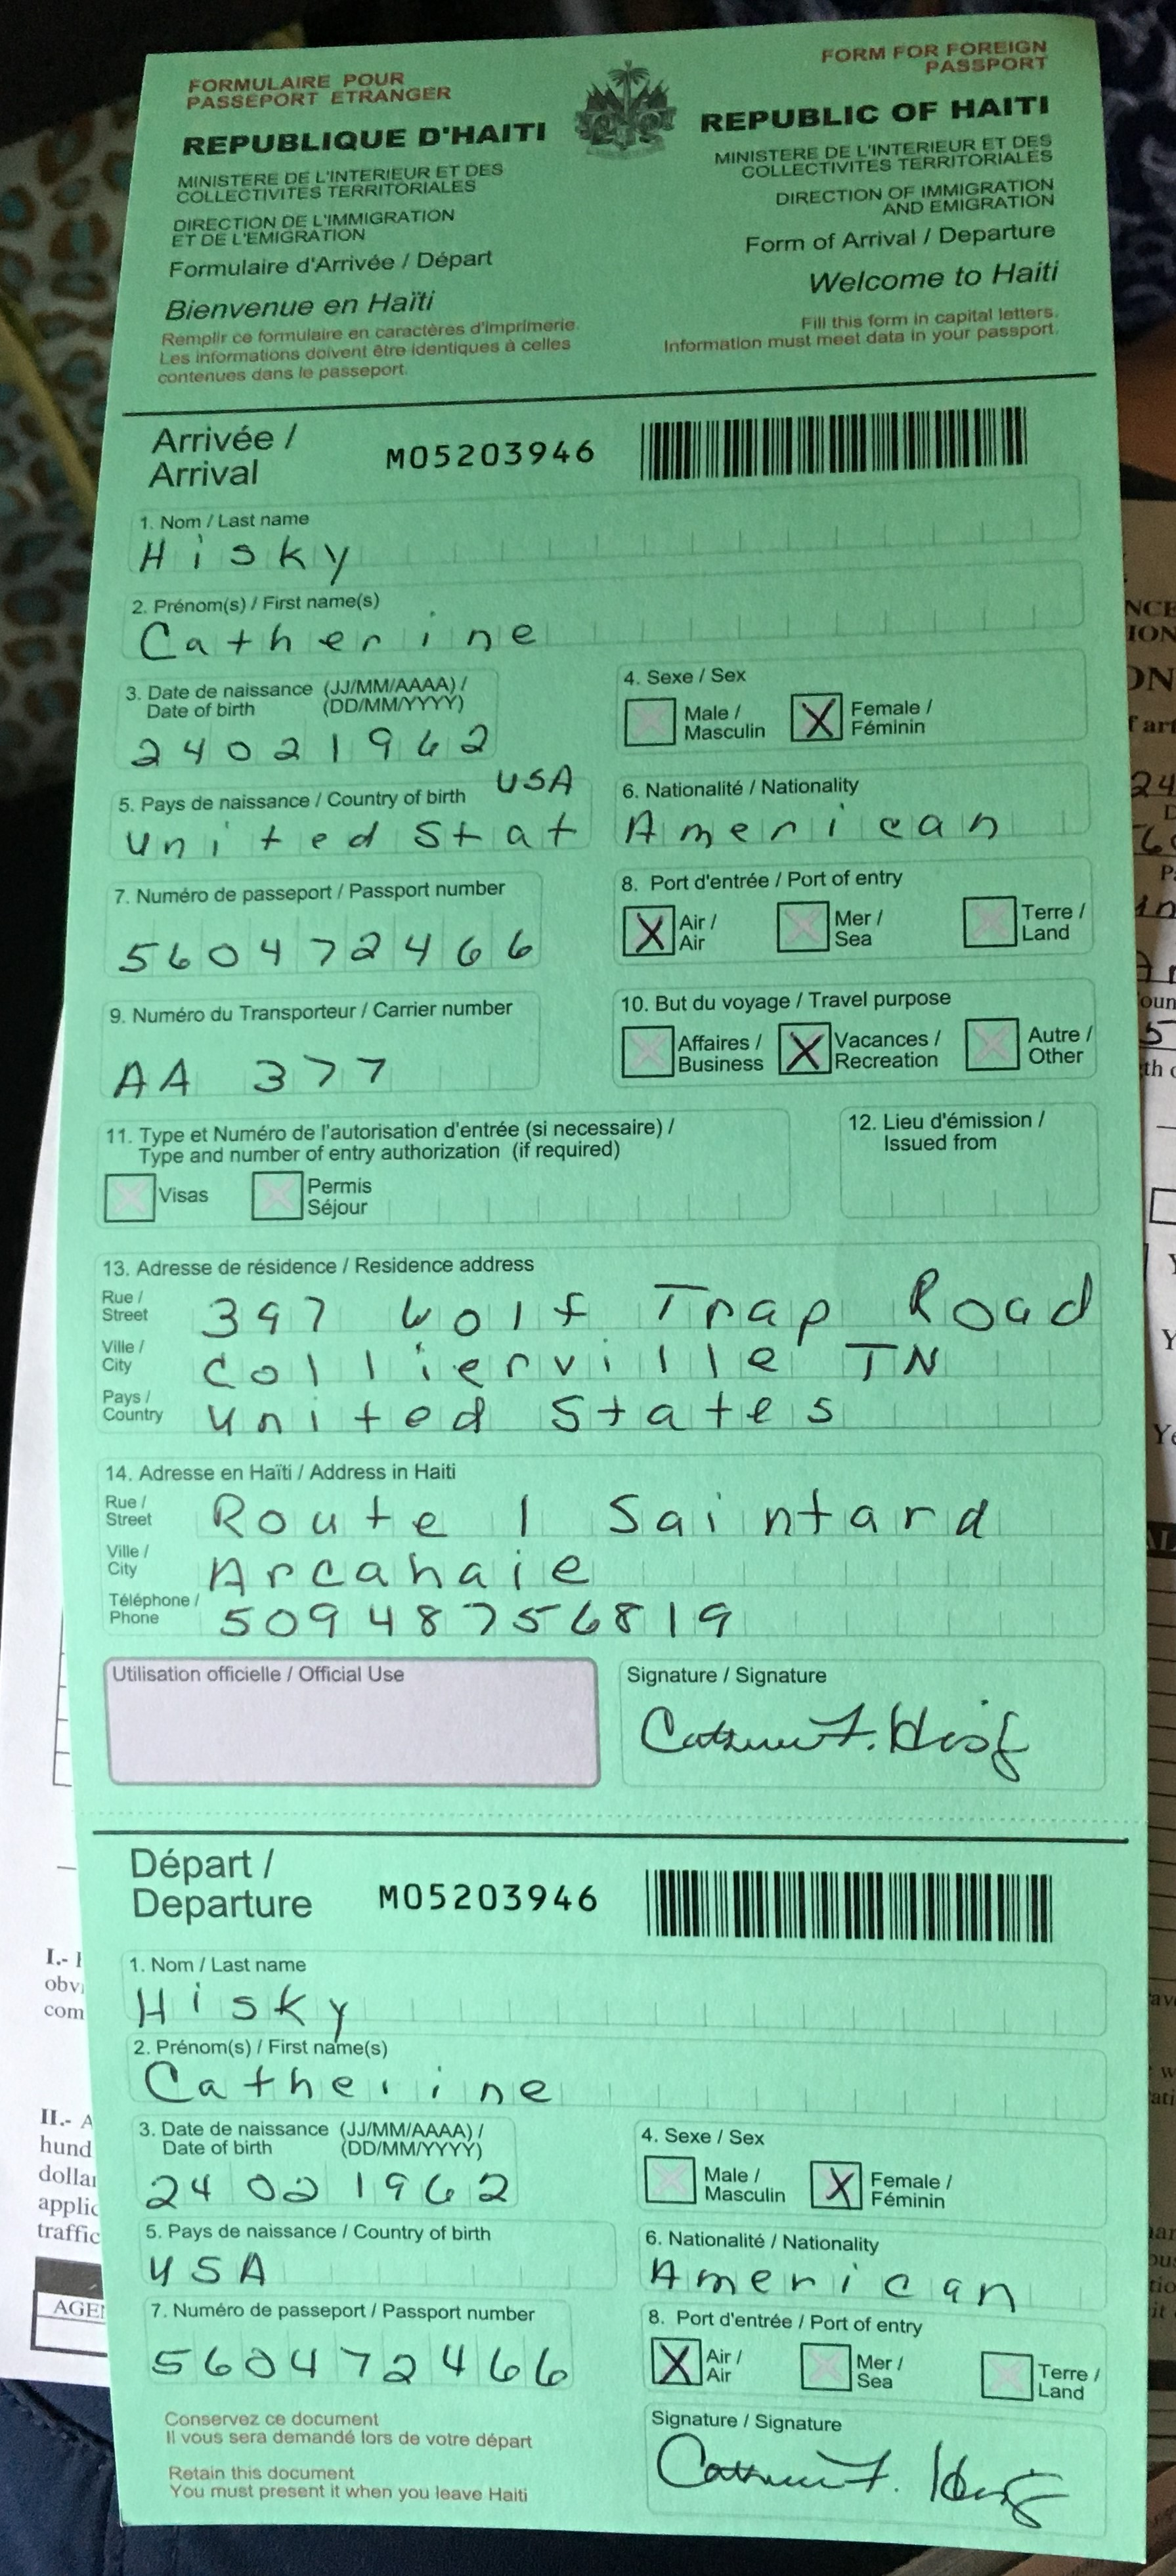 FORMULAIRE POUR
PASSEPORT ETRANGER
REPUBLIQUE D'HAITI
MINISTERE DE L'INTERIEUR ET DES
COLLECTIVITES TERRITORIALES
DIRECTION DE L'IMMIGRATION
ET DE L'EMIGRATION
Formulaire d'Arrivée / Départ
Bienvenue en Haïti
Remplir ce formulaire en caractères d'imprimerie.
Les informations doivent être identiques à celles
contenues dans le passeport.
FORM FOR FOREIGN
PASSPORT
REPUBLIC OF HAITI
MINISTERE DE L'INTERIEUR ET DES
COLLECTIVITES TERRITORIALES
DIRECTION OF IMMIGRATION
AND EMIGRATION
Form of Arrival / Departure
Welcome to Haiti
Fill this form in capital letters.
Information must meet data in your passport.
Arrivée /
Arrival
M05203946
1. Nom / Last name
Hisky
2. Prénom(s) / First name(s)
Catherine
3. Date de naissance (JJ/MM/AAAA) /
Date of birth (DD/MM/YYYY)
24021962
4. Sexe / Sex
Male /
Masculin
X
Female /
Féminin
5. Pays de naissance / Country of birth USA
United Stat
6. Nationalité / Nationality
American
7. Numéro de passeport / Passport number
560472466
8. Port d'entrée / Port of entry
X
Air /
Air
Mer /
Sea
Terre /
Land
9. Numéro du Transporteur / Carrier number
AA 377
10. But du voyage / Travel purpose
Affaires /
Business
X
Vacances /
Recreation
Autre /
Other
11. Type et Numéro de l'autorisation d'entrée (si necessaire) /
Type and number of entry authorization (if required)
Visas
Permis
Séjour
12. Lieu d'émission /
Issued from
13. Adresse de résidence / Residence address
Rue /
Street
397 Wolf Trap Road
Ville /
City
Collierville TN
Pays /
Country
United States
14. Adresse en Haïti / Address in Haiti
Rue /
Street
Route 1 Saintard
Ville /
City
Arcahaie
Téléphone /
Phone
50948756819
Utilisation officielle / Official Use
Signature / Signature
Départ /
Departure
M05203946
1. Nom / Last name
Hisky
2. Prénom(s) / First name(s)
Catherine
3. Date de naissance (JJ/MM/AAAA) /
Date of birth (DD/MM/YYYY)
24021962
4. Sexe / Sex
Male /
Masculin
X
Female /
Féminin
5. Pays de naissance / Country of birth
USA
6. Nationalité / Nationality
American
7. Numéro de passeport / Passport number
560472466
8. Port d'entrée / Port of entry
X
Air /
Air
Mer /
Sea
Terre /
Land
Conservez ce document
Il vous sera demandé lors de votre départ
Retain this document
You must present it when you leave Haiti
Signature / Signature